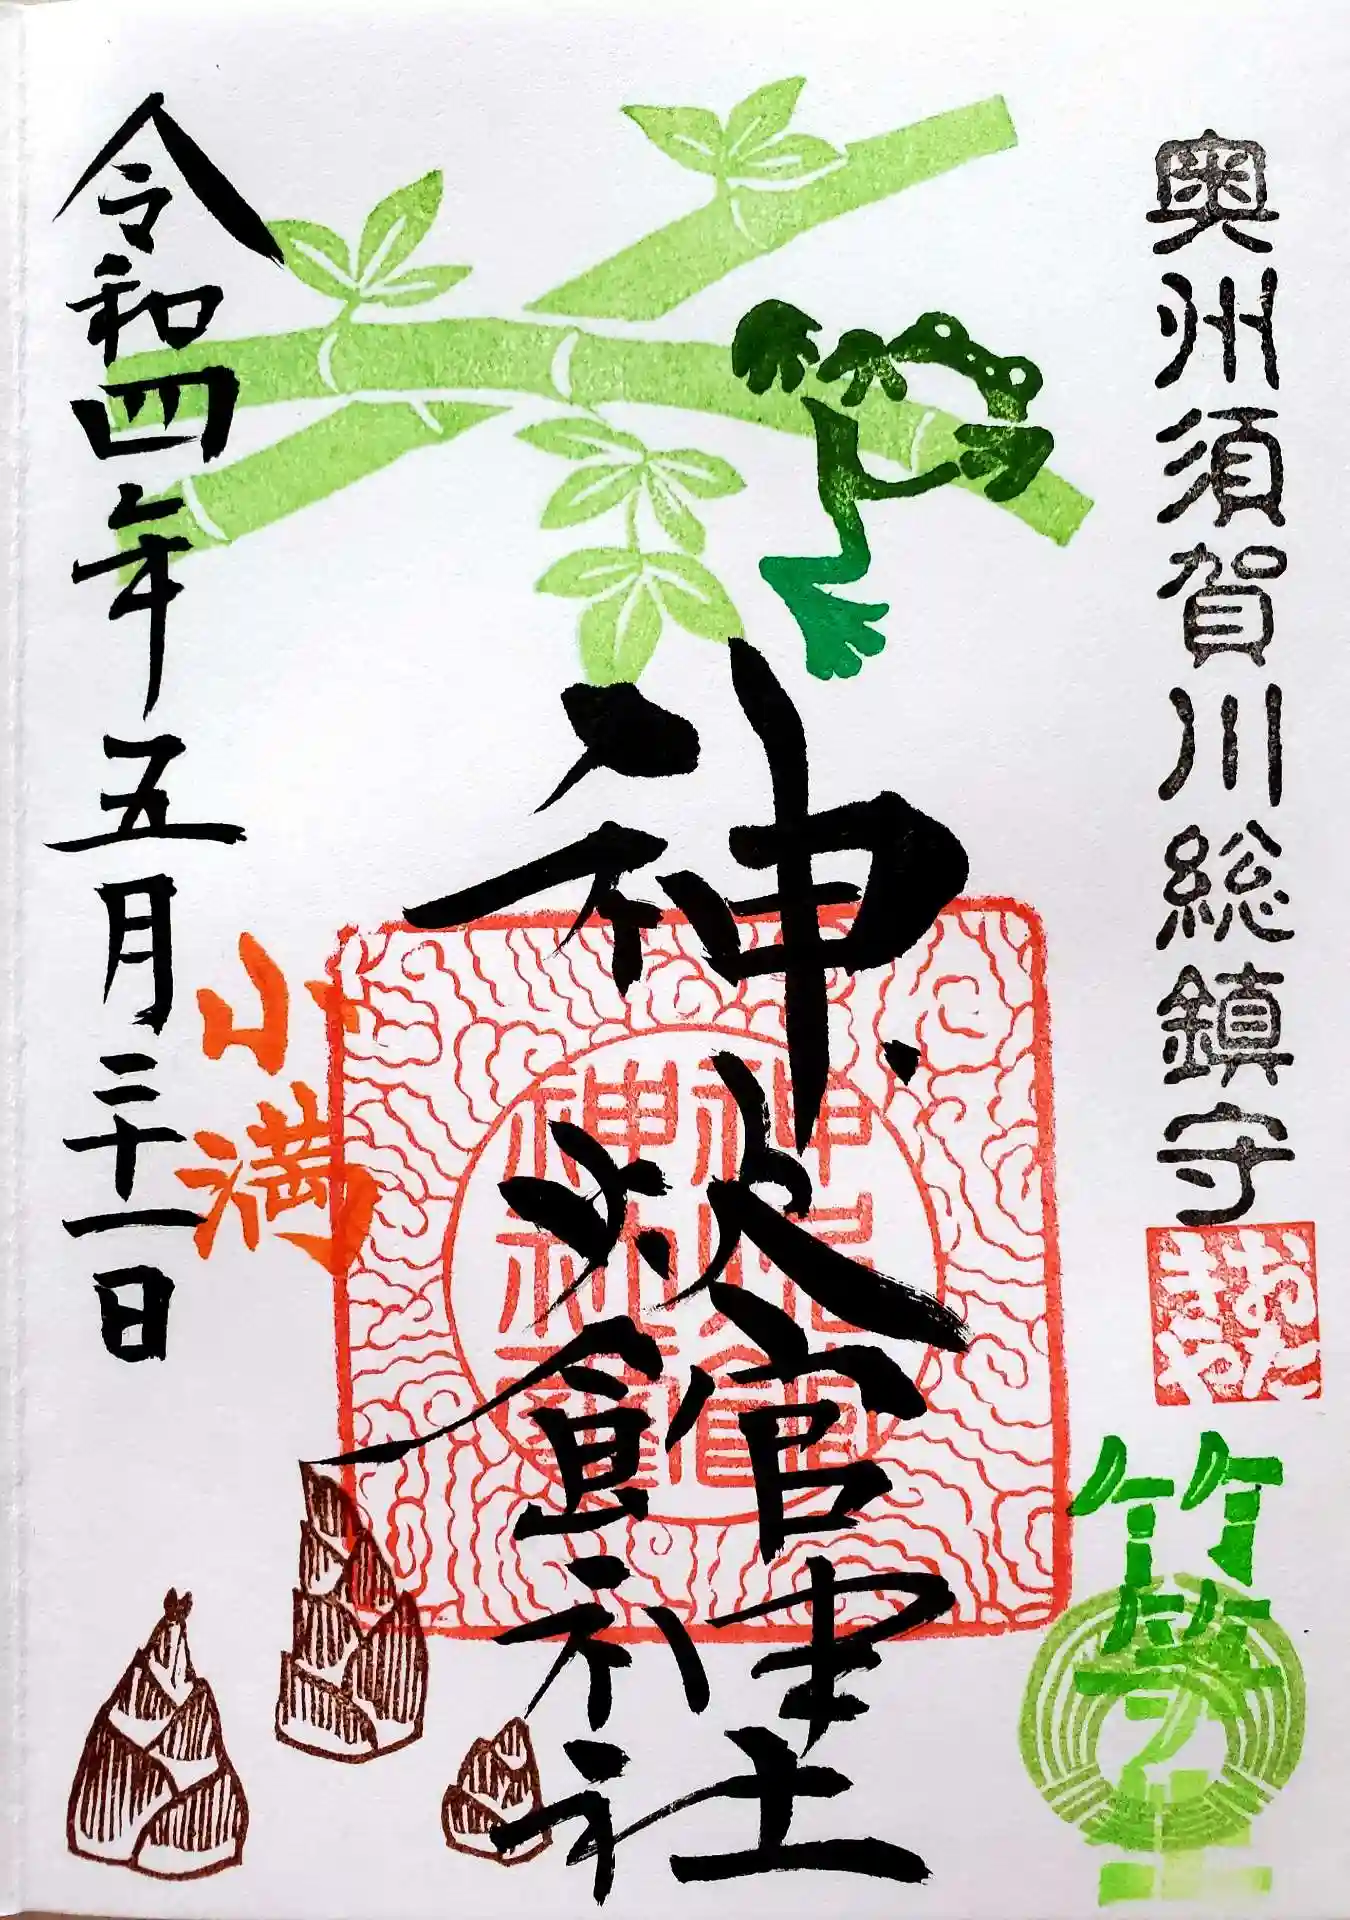 奥州須賀川総鎮守
おたきや
竹笋生
神炊館神社
小満
令和四年五月二十一日